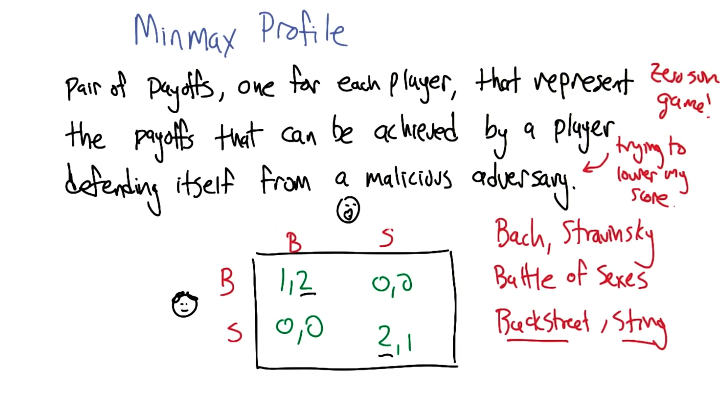 Minmax Profile
Pair of payoffs, one for each player, that represent
the payoffs that can be achieved by a player
defending itself from a malicious adversary.
zero sum
game!
trying to
lower my
score.
B S
B 1,2 0,0
S 0,0 2,1
Bach, Stravinsky
Battle of Sexes
Backstreet, Sting